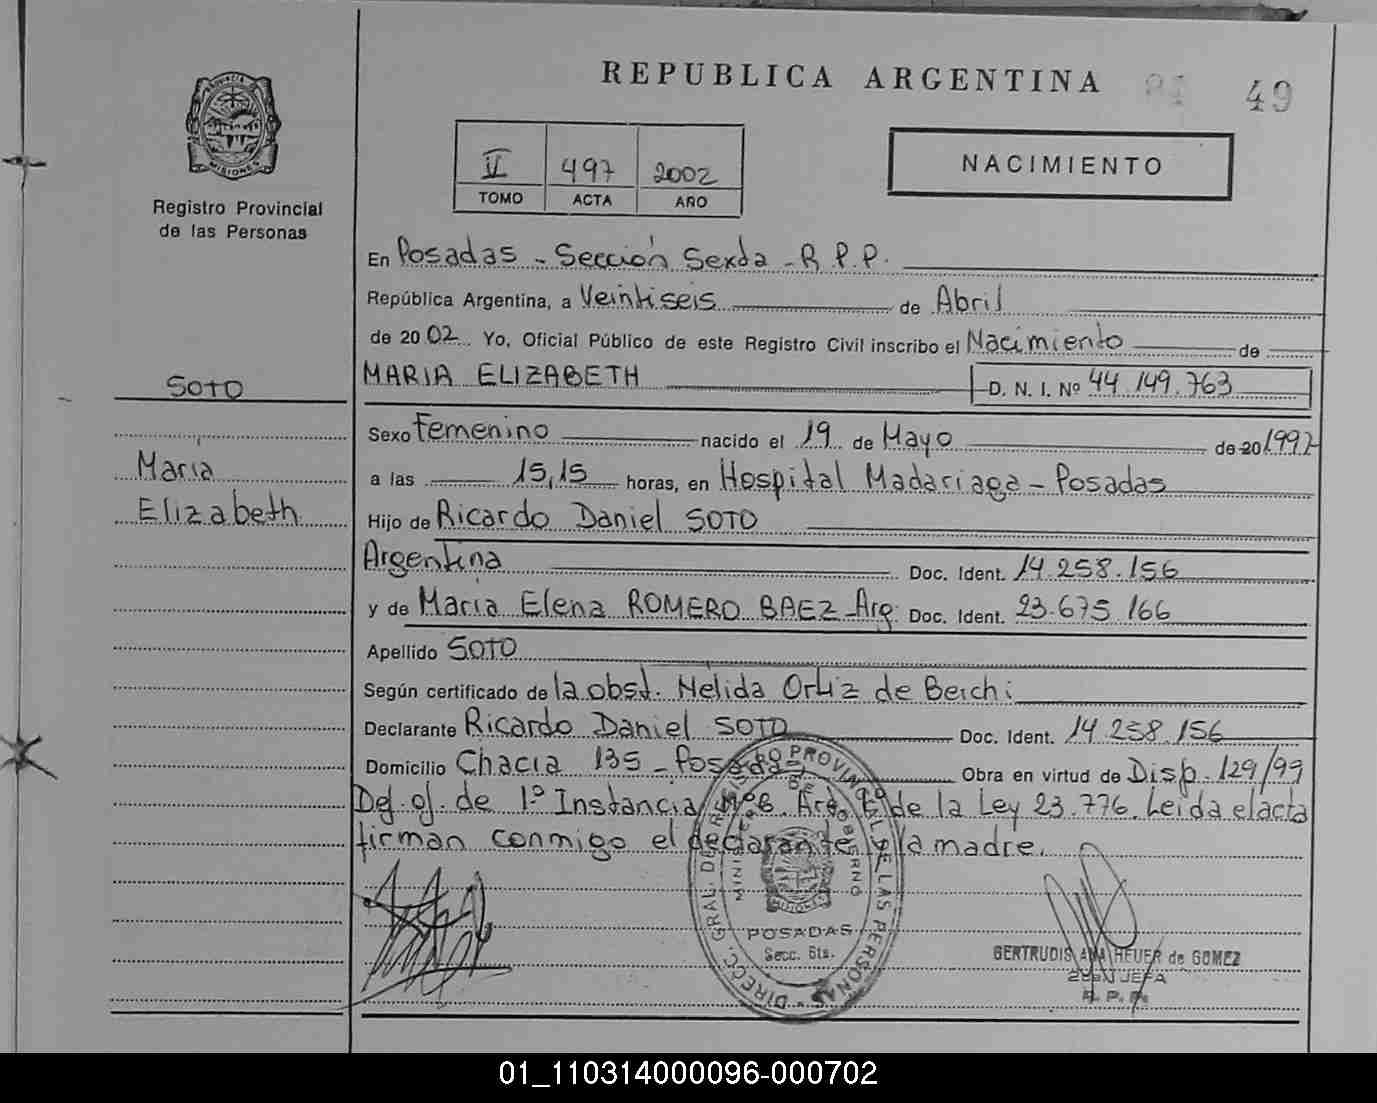 REPUBLICA ARGENTINA
84 49
PROVINCIA
MISIONES
Registro Provincial
de las Personas
II 497 2002
TOMO ACTA AÑO
NACIMIENTO
En Posadas - Sección Sexta - R.P.P.
República Argentina, a Veintiseis de Abril
de 20 02. Yo, Oficial Público de este Registro Civil inscribo el Nacimiento de
MARIA ELIZABETH D. N. I. Nº 44.149.763
SOTO
María
Elizabeth
Sexo Femenino nacido el 19 de Mayo de 20 1997
a las 15,15 horas, en Hospital Madariaga - Posadas
Hijo de Ricardo Daniel SOTO
Argentina Doc. Ident. 14.258.156
y de María Elena ROMERO BAEZ - Arg. Doc. Ident. 23.675.166
Apellido SOTO
Según certificado de la obst. Nelida Ortiz de Berchi
Declarante Ricardo Daniel SOTO Doc. Ident. 14.258.156
Domicilio Chacra 135 - Posadas Obra en virtud de Disp. 129/99
Def. of. de 1º Instancia Nº 8. Art. de la Ley 23.776. Leida el acta
firman conmigo el declarante y la madre.
DIREC. GRAL. DE REGISTRO PROVINCIAL DE LAS PERSONAS
MINISTERIO DE GOBIERNO
MISIONES
POSADAS
Secc. 6ta.
GERTRUDIS ANA HEUER de GOMEZ
JEFA
R. P. P.
01_110314000096-000702